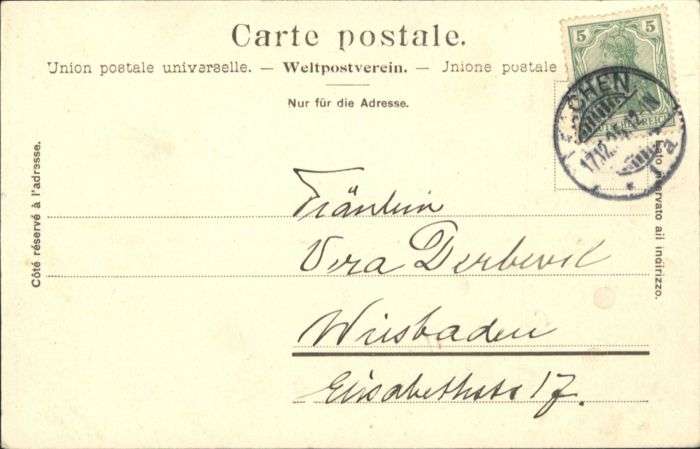 Carte postale.
Union postale universelle. — Weltpostverein. — Jnione postale
Nur für die Adresse.
5 5
ACHEN
17.12.
1 a
Côté réservé à l'adresse.
Lato riservato all indirizzo.
Fräulein
Vera Derbevil
Wiesbaden
Elisabethstr 17.